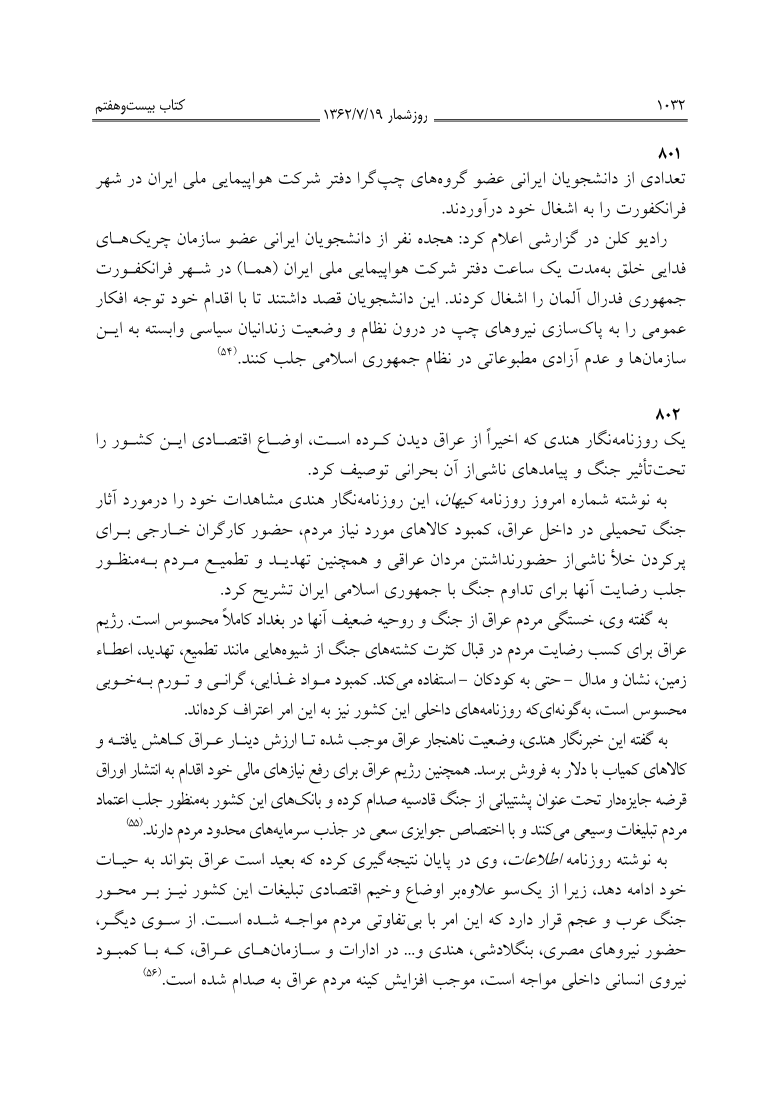 ۱۰۳۲
روزشمار ۱۳۶۲/۷/۱۹
کتاب بیست‌وهفتم
۸۰۱
تعدادی از دانشجویان ایرانی عضو گروه‌های چپ‌گرا دفتر شرکت هواپیمایی ملی ایران در شهر
فرانکفورت را به اشغال خود درآوردند.
رادیو کلن در گزارشی اعلام کرد: هجده نفر از دانشجویان ایرانی عضو سازمان چریک‌هـای
فدایی خلق به‌مدت یک ساعت دفتر شرکت هواپیمایی ملی ایران (همـا) در شـهر فرانکفـورت
جمهوری فدرال آلمان را اشغال کردند. این دانشجویان قصد داشتند تا با اقدام خود توجه افکار
عمومی را به پاک‌سازی نیروهای چپ در درون نظام و وضعیت زندانیان سیاسی وابسته به ایـن
سازمان‌ها و عدم آزادی مطبوعاتی در نظام جمهوری اسلامی جلب کنند.(۵۴)
۸۰۲
یک روزنامه‌نگار هندی که اخیراً از عراق دیدن کـرده اسـت، اوضـاع اقتصـادی ایـن کشـور را
تحت‌تأثیر جنگ و پیامدهای ناشی‌از آن بحرانی توصیف کرد.
به نوشته شماره امروز روزنامه کیهان، این روزنامه‌نگار هندی مشاهدات خود را درمورد آثار
جنگ تحمیلی در داخل عراق، کمبود کالاهای مورد نیاز مردم، حضور کارگران خـارجی بـرای
پرکردن خلأ ناشی‌از حضورنداشتن مردان عراقی و همچنین تهدیـد و تطمیـع مـردم بـه‌منظـور
جلب رضایت آنها برای تداوم جنگ با جمهوری اسلامی ایران تشریح کرد.
به گفته وی، خستگی مردم عراق از جنگ و روحیه ضعیف آنها در بغداد کاملاً محسوس است. رژیم
عراق برای کسب رضایت مردم در قبال کثرت کشته‌های جنگ از شیوه‌هایی مانند تطمیع، تهدید، اعطـاء
زمین، نشان و مدال –حتی به کودکان –استفاده می‌کند. کمبود مـواد غـذایی، گرانـی و تـورم بـه‌خـوبی
محسوس است، به‌گونه‌ای‌که روزنامه‌های داخلی این کشور نیز به این امر اعتراف کرده‌اند.
به گفته این خبرنگار هندی، وضعیت ناهنجار عراق موجب شده تـا ارزش دینـار عـراق کـاهش یافتـه و
کالاهای کمیاب با دلار به فروش برسد. همچنین رژیم عراق برای رفع نیازهای مالی خود اقدام به انتشار اوراق
قرضه جایزه‌دار تحت عنوان پشتیبانی از جنگ قادسیه صدام کرده و بانک‌های این کشور به‌منظور جلب اعتماد
مردم تبلیغات وسیعی می‌کنند و با اختصاص جوایزی سعی در جذب سرمایه‌های محدود مردم دارند.(۵۵)
به نوشته روزنامه اطلاعات، وی در پایان نتیجه‌گیری کرده که بعید است عراق بتواند به حیـات
خود ادامه دهد، زیرا از یک‌سو علاوه‌بر اوضاع وخیم اقتصادی تبلیغات این کشور نیـز بـر محـور
جنگ عرب و عجم قرار دارد که این امر با بی‌تفاوتی مردم مواجـه شـده اسـت. از سـوی دیگـر،
حضور نیروهای مصری، بنگلادشی، هندی و... در ادارات و سـازمان‌هـای عـراق، کـه بـا کمبـود
نیروی انسانی داخلی مواجه است، موجب افزایش کینه مردم عراق به صدام شده است.(۵۶)